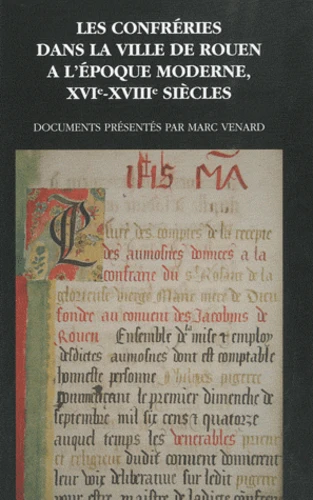 LES CONFRÉRIES
DANS LA VILLE DE ROUEN
A L'ÉPOQUE MODERNE,
XVIe-XVIIIe SIÈCLES
DOCUMENTS PRÉSENTÉS PAR MARC VENARD
IHS MA
Livre des comptes de la recepte
des aumosnes donnees a la
confrarie du st Rosaire de la
glorieuse vierge Marie mere de Dieu
fondee au convent des Jacobins de
Rouen Ensemble de la mise & employ
desdictes aumosnes dont est comptable
honneste personne pigerre
commencant le premier dimenche de
septembre mil six cens & quatorze
auquel temps les venerables prieur
et religieux dudit convent donnerent
leur voix deliberative sur ledit pigerre
pour estre maistre de ladicte